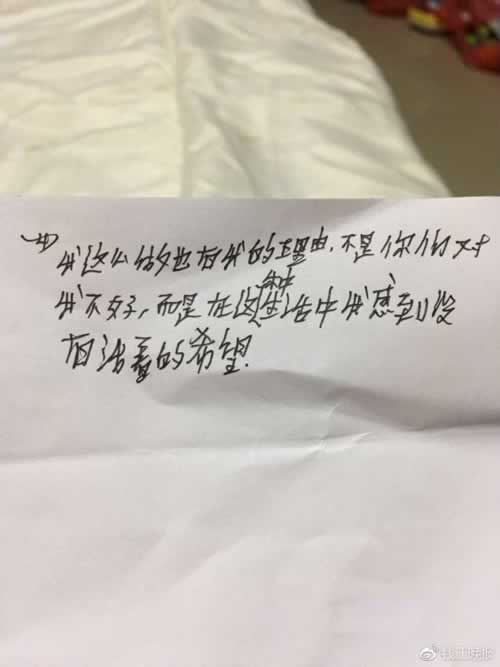 (4)
我这么做也有我的理由,不是你们对
我不好,而是在这种生活中我感到没
有活着的希望.
钱江晚报